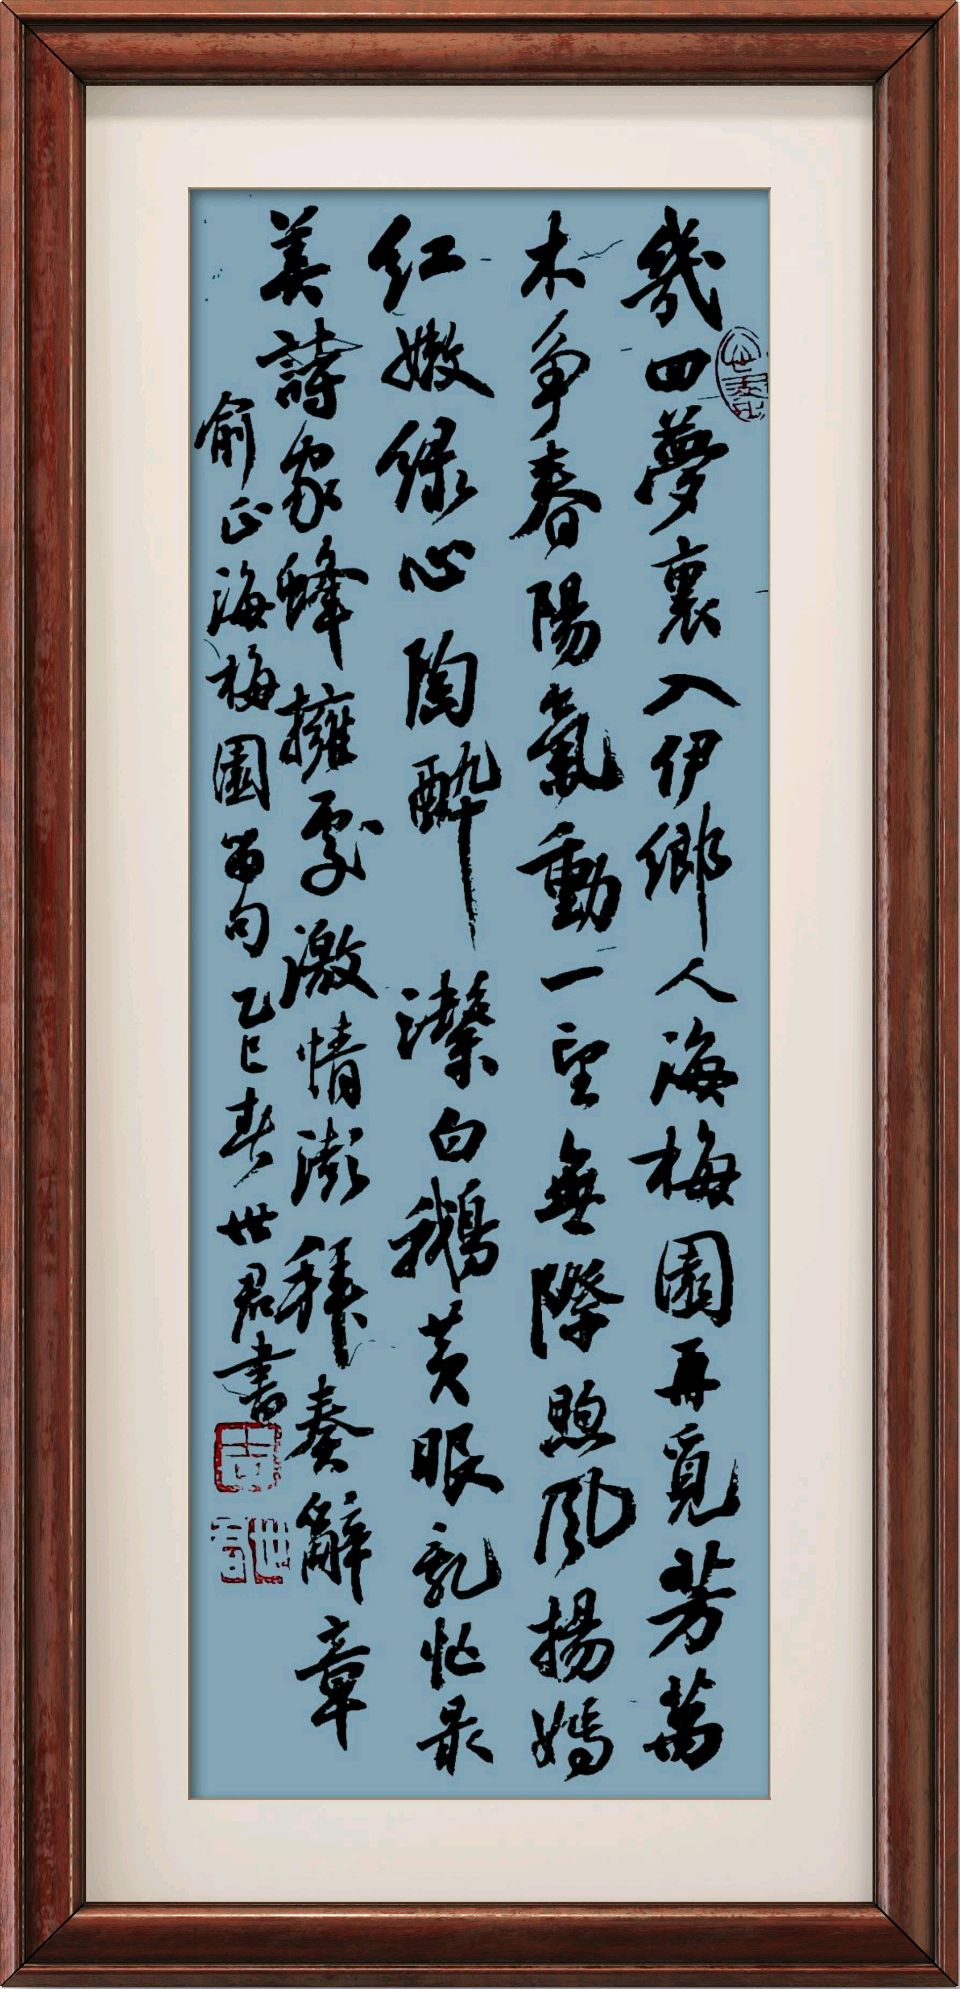 幾回夢裏入伊鄉人海梅園再覓芳萬
木爭春陽氣動一望無際煦風揚嫣
紅嫩綠心陶醉潔白鵝黃眼亂忙最
美詩家蜂擁處激情澎拜奏辭章
俞正海梅園留句乙巳春世君書
世君